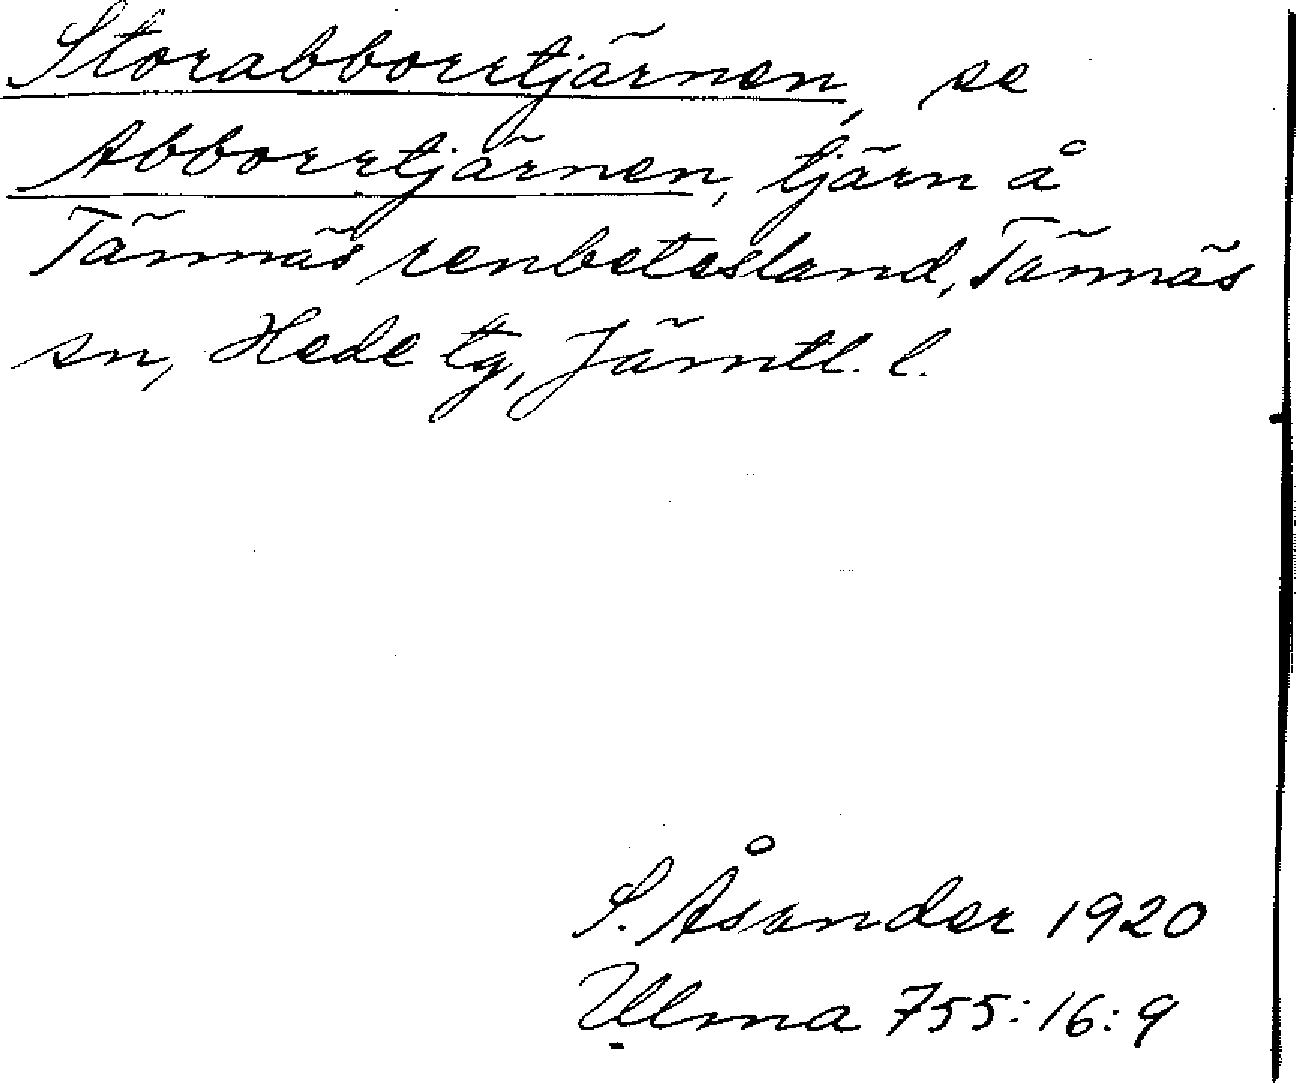 Storabborrtjärnen, se
Abborrtjärnen, tjärn å
Tännäs renbetesland, Tännäs
sn, Hede tg, Jämtl. l.
S. Åsander 1920
Ulma 755:16:9